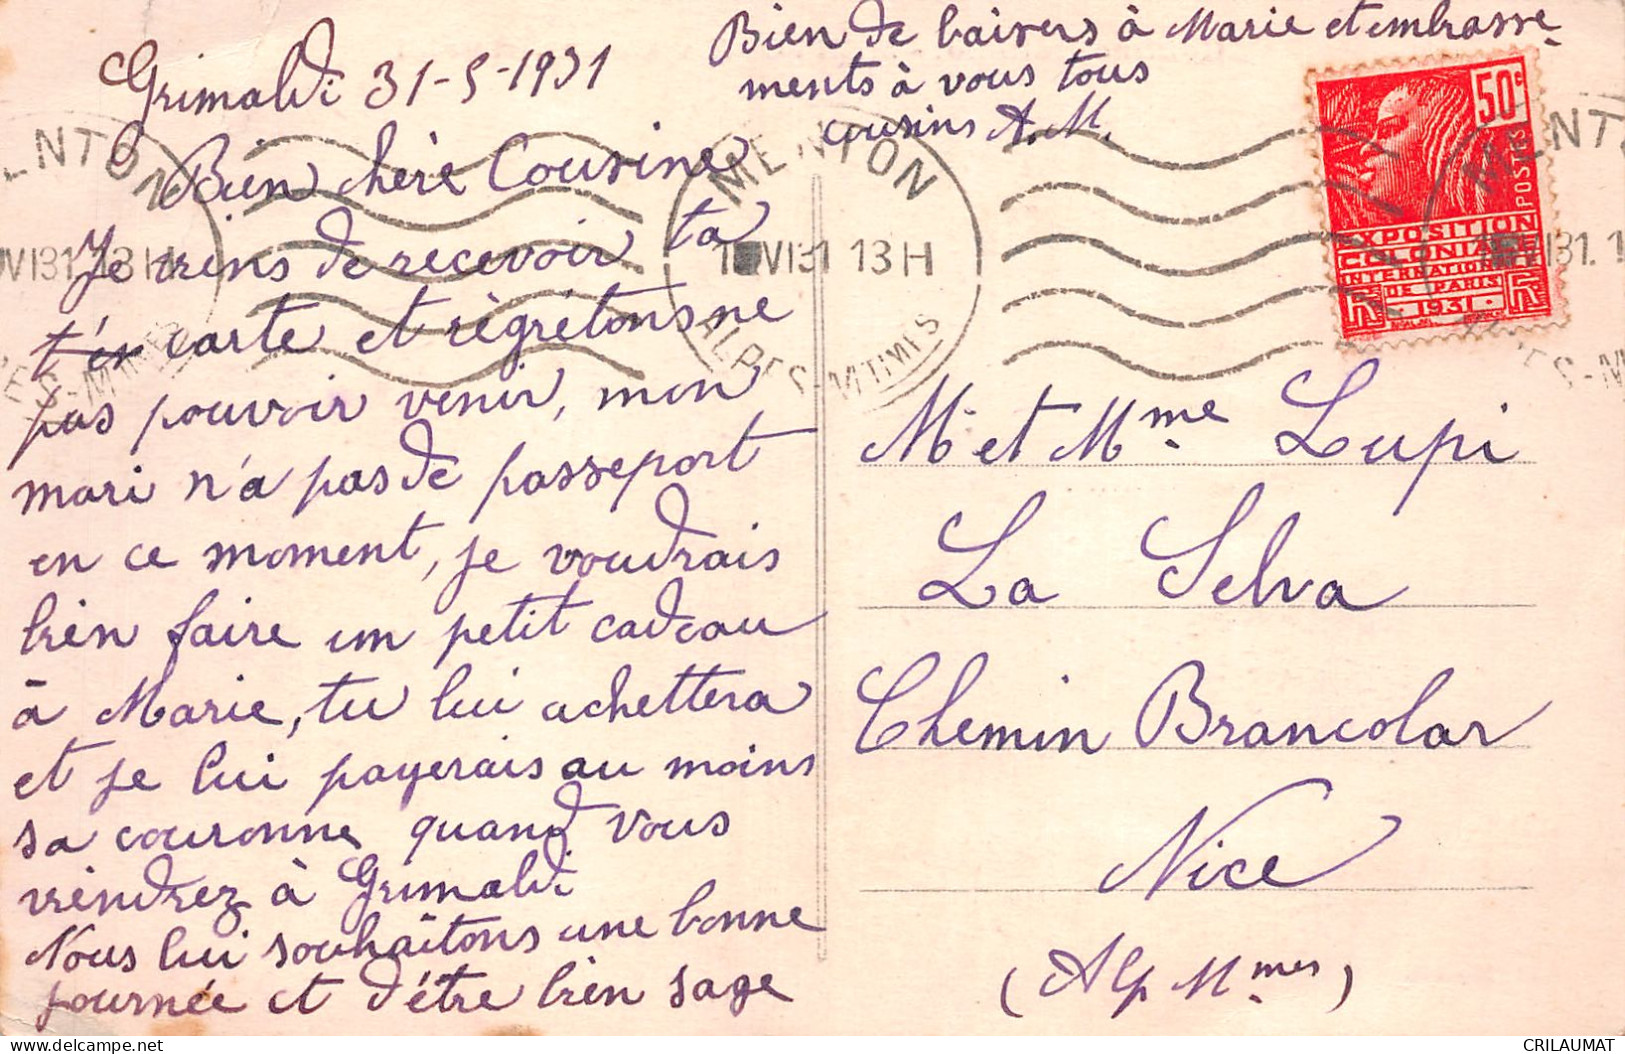 Grimaldi 31-5-1931
Bien chère Cousine
Je viens de recevoir ta
t'es carte et règrétons ne
pas pouvoir venir, mon
mari n'a pas de passeport
en ce moment, je voudrais
bien faire un petit cadeau
à Marie, tu lui achettera
et je lui payerais au moins
sa couronne quand vous
viendrez à Grimaldi
Nous lui souhaitons une bonne
journée et d'être bien sage
Bien de baisers à Marie et embrasse-
ments à vous tous
cousins A.M.
MENTON
VI31 13H
ALPES-MTIMES
50c
POSTES
EXPOSITION
COLONIALE
INTERNATIONALE
DE PARIS
1931
RF RF
M et Mme Lupi
La Selva
Chemin Brancolar
Nice
(Alp Mmes)
CRILAUMAT